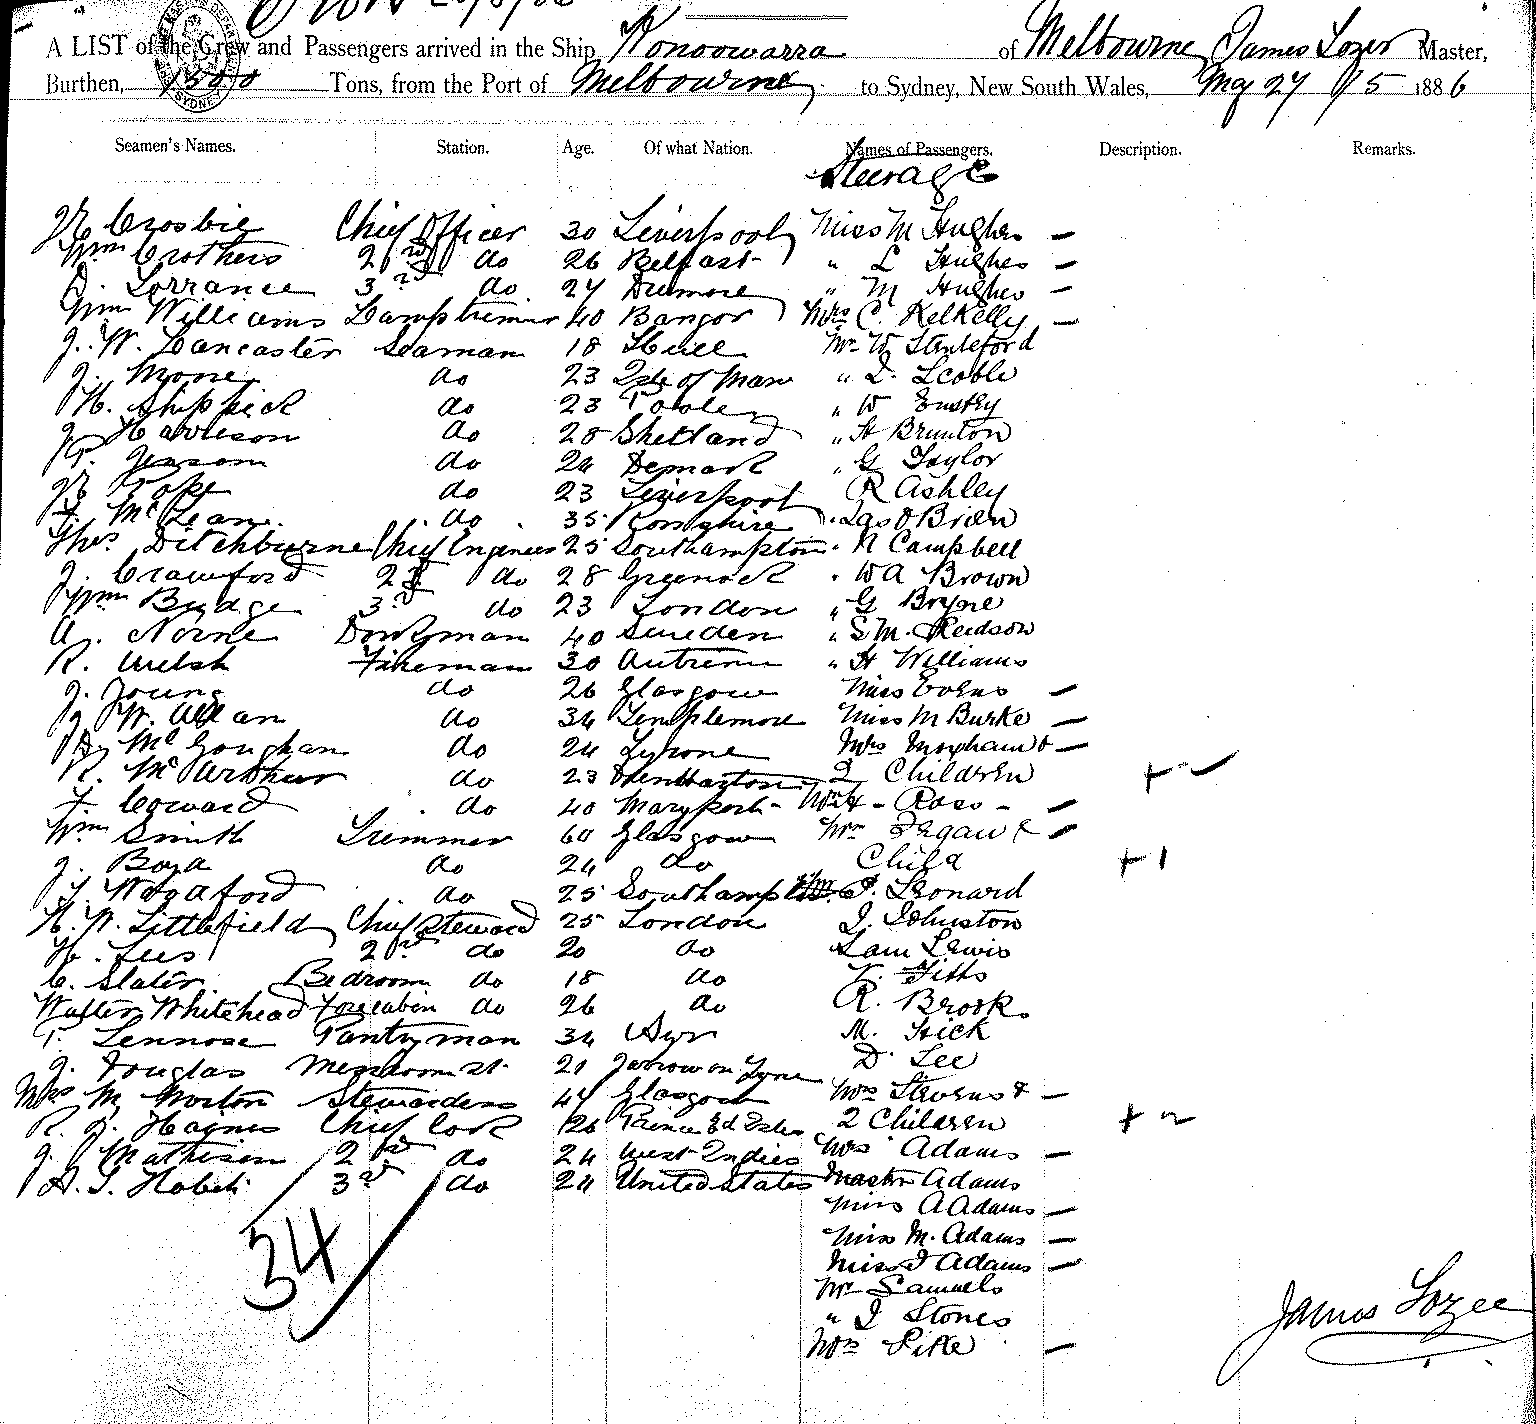 A LIST of the Crew and Passengers arrived in the Ship Konoowarra of Melbourne James Lozer Master,
Burthen, 1300 Tons, from the Port of Melbourne to Sydney, New South Wales, May 27 1886
Seamen's Names. Station. Age. Of what Nation. Names of Passengers. Description. Remarks.
Steerage
Crosbie Chief Officer 30 Liverpool Miss M Hughes —
Wm Crothers 2nd do 26 Belfast " L Hughes —
D. Lorrance 3rd do 27 Dromore " M Hughes —
Wm Williams Lamptrimmer 40 Bangor Mrs C. Kelkelly —
J. W. Lancaster Seaman 18 Hull Mr W Stapleford
J. Moore do 23 Isle of Man " L. Scoble
H. Shippick do 23 Poole " W
J. Harrison do 28 Shetland " H Brunton
do 24 Demark " G Taylor
Pope do 23 Liverpool R Ashley
McLean do 35 " Jas O Brien
Thos Ditchburne Chief Engineer 25 Southampton " R Campbell
J. Crawford 2d do 28 Greenock " W A Brown
Wm Budge 3rd do 23 London " G Bryne
A. Norne Donkyman 40 Sweden " S M.
R. Welsh Fireman 30 Antrim " H Williams
J. Young do 26 Glasgow Miss Evens —
J. W. Allan do 34 Templemore Miss M Burke —
Mc Goughan do 24 Tyrone Mrs &—
R. McArthur do 23 2 Children + 2
Coward do 40 Maryport Mrs - Ross - —
Wm Smith Trimmer 60 Glasgow Mrs Fagan & —
J. Boyd do 24 do Child + 1
J. Woodford do 25 Southampton J. Leonard
H. W. Littlefield Chief Steward 25 London J. Johnston
H. Lees 2nd do 20 do Sam Lewis
C. Slater Bedroom do 18 do Fitts
Walter Whitehead Forecabin do 26 do R. Brook
T. Lennose Pantryman 34 Ayr M. Hick
J. Douglas Messroom st. 21 Jarrow on Tyne D. Lee
Mrs M Morton Stewardess 44 Glasgow Mrs Stevens & —
R. J. Haynes Chief Cook 26 Prince Ed Isles 2 Children + 2
J. Mathisen 2nd do 24 West Indies Mrs Adams —
3rd do 24 United States Master Adams
Miss A Adams —
34 Miss M. Adams —
Miss J Adams —
Mr Samuels
" J Stones
Mrs —
James Lozer